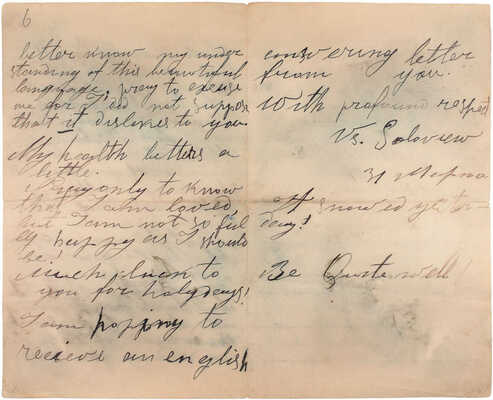 6
better know my under
standing of this beautiful
language, pray to excuse
me for I did not suppose
that it dislikes to you.
My health betters a
little.
I wish only to know
that I am loved,
but I am not so ful
ly happy as I should
be!
Much pleasur to
you for holydays!
I am hopping to
recieve an english
answering letter
from you.
With profound respect
Vs. Soloview
31 Марта
It snowed yester-
day!
Be